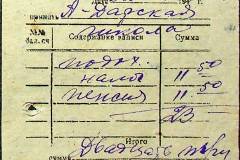 А Дарская
школа
№№ бал. сч Содержание записи Сумма
подох.
налог 11-50
пенсия 11.50
23
Итого
Двадцать три